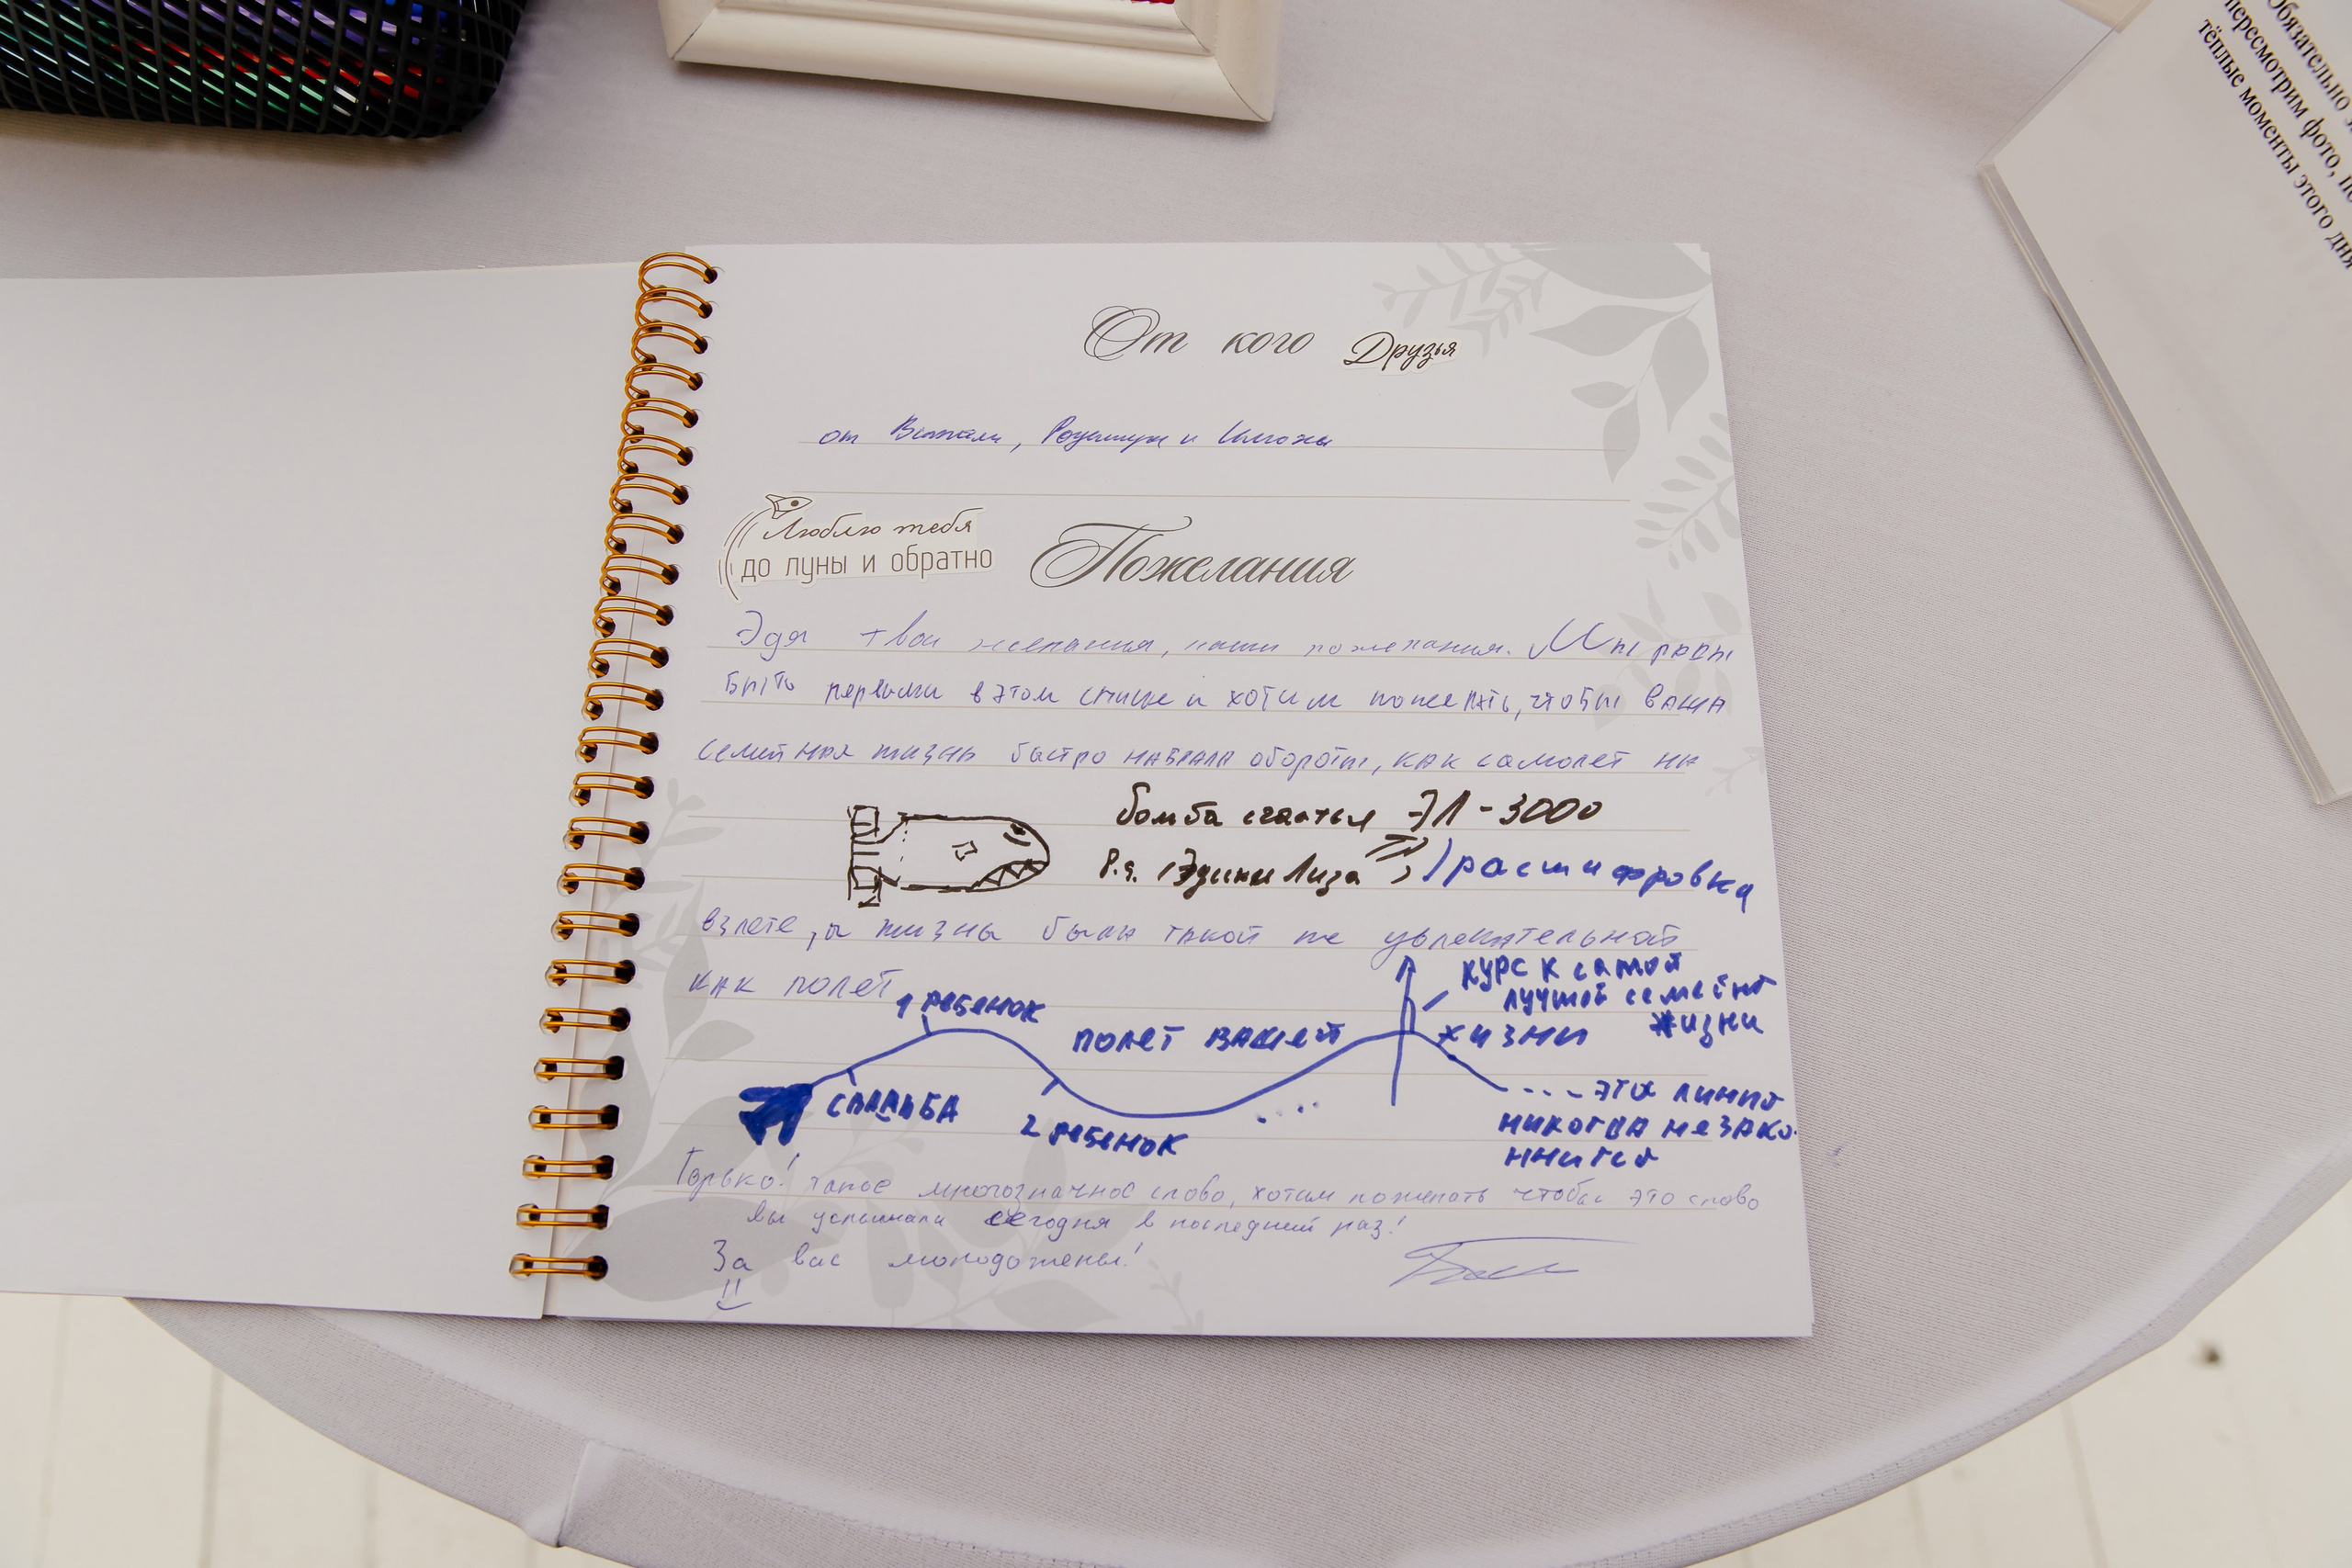 Обязательно
пересмотрим фото, по
тёплые моменты этого дня
От кого Друзья
от Витали, и
Люблю тебя
до луны и обратно
Пожелания
Эдя твои желания, наши пожелания. Мы рады
быть первыми в этом списке и хотим пожелать, чтобы ваша
семейная жизнь быстро набрала обороты, как самолет на
бомба счастья ЭЛ-3000
Р.я. (Эдик и Лиза) / расшифровка
взлете, а жизнь была такой же увлекательной
как полет
курс к самой
лучшей семейной
жизни
1 ребенок
полет вашей жизни
свадьба
2 ребенок
.... эта линия
никогда не зако-
ннится
Горько! такое многозначное слово, хотим пожелать чтобы это слово
вы услышали сегодня в последний раз!
За вас молодожены!